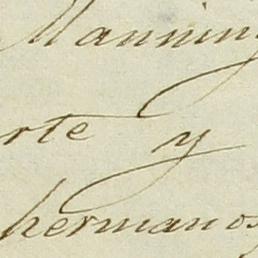 Manning
rte y
hermanos